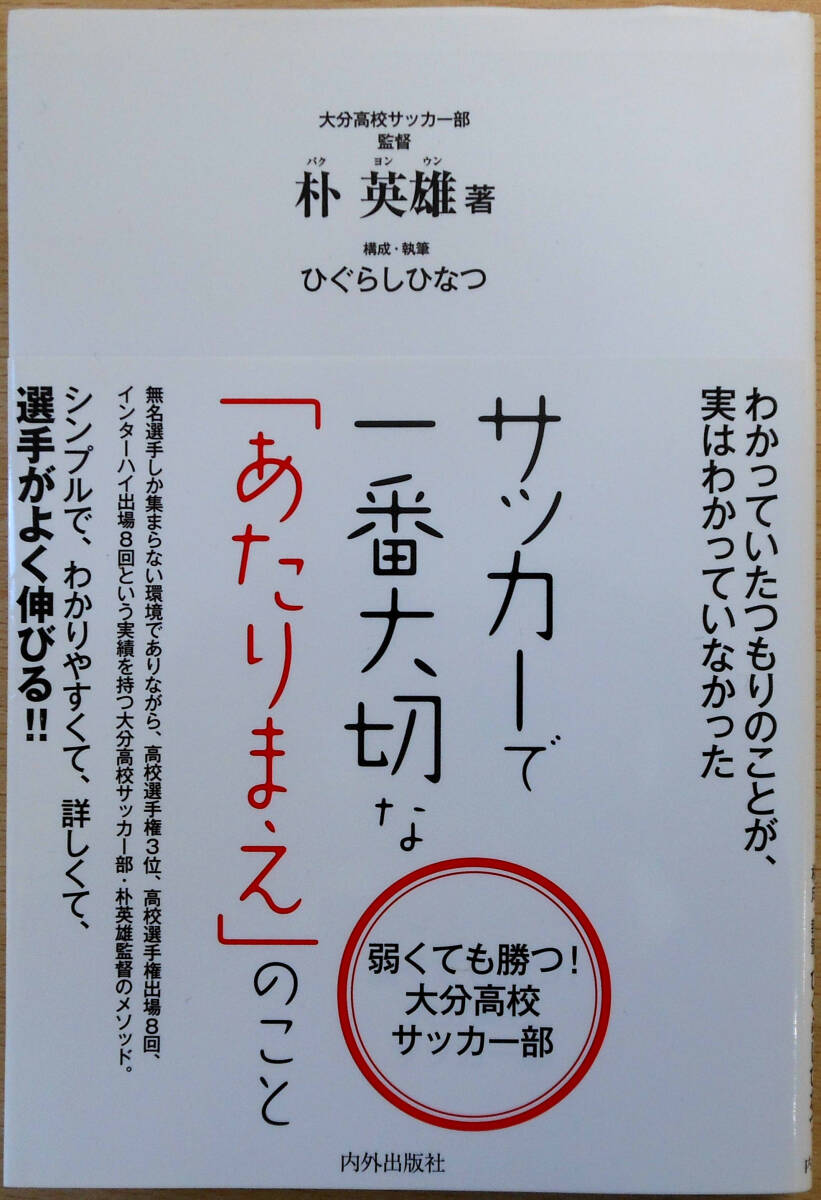 大分高校サッカー部
監督
パク ヨン ウン
朴 英雄 著
構成・執筆
ひぐらしひなつ
わかっていたつもりのことが、
実はわかっていなかった
サッカーで
一番大切な
「あたりまえ」のこと
弱くても勝つ!
大分高校
サッカー部
無名選手しか集まらない環境でありながら、高校選手権3位、高校選手権出場8回、
インターハイ出場8回という実績を持つ大分高校サッカー部・朴英雄監督のメソッド。
シンプルで、わかりやすくて、詳しくて、
選手がよく伸びる!!
内外出版社